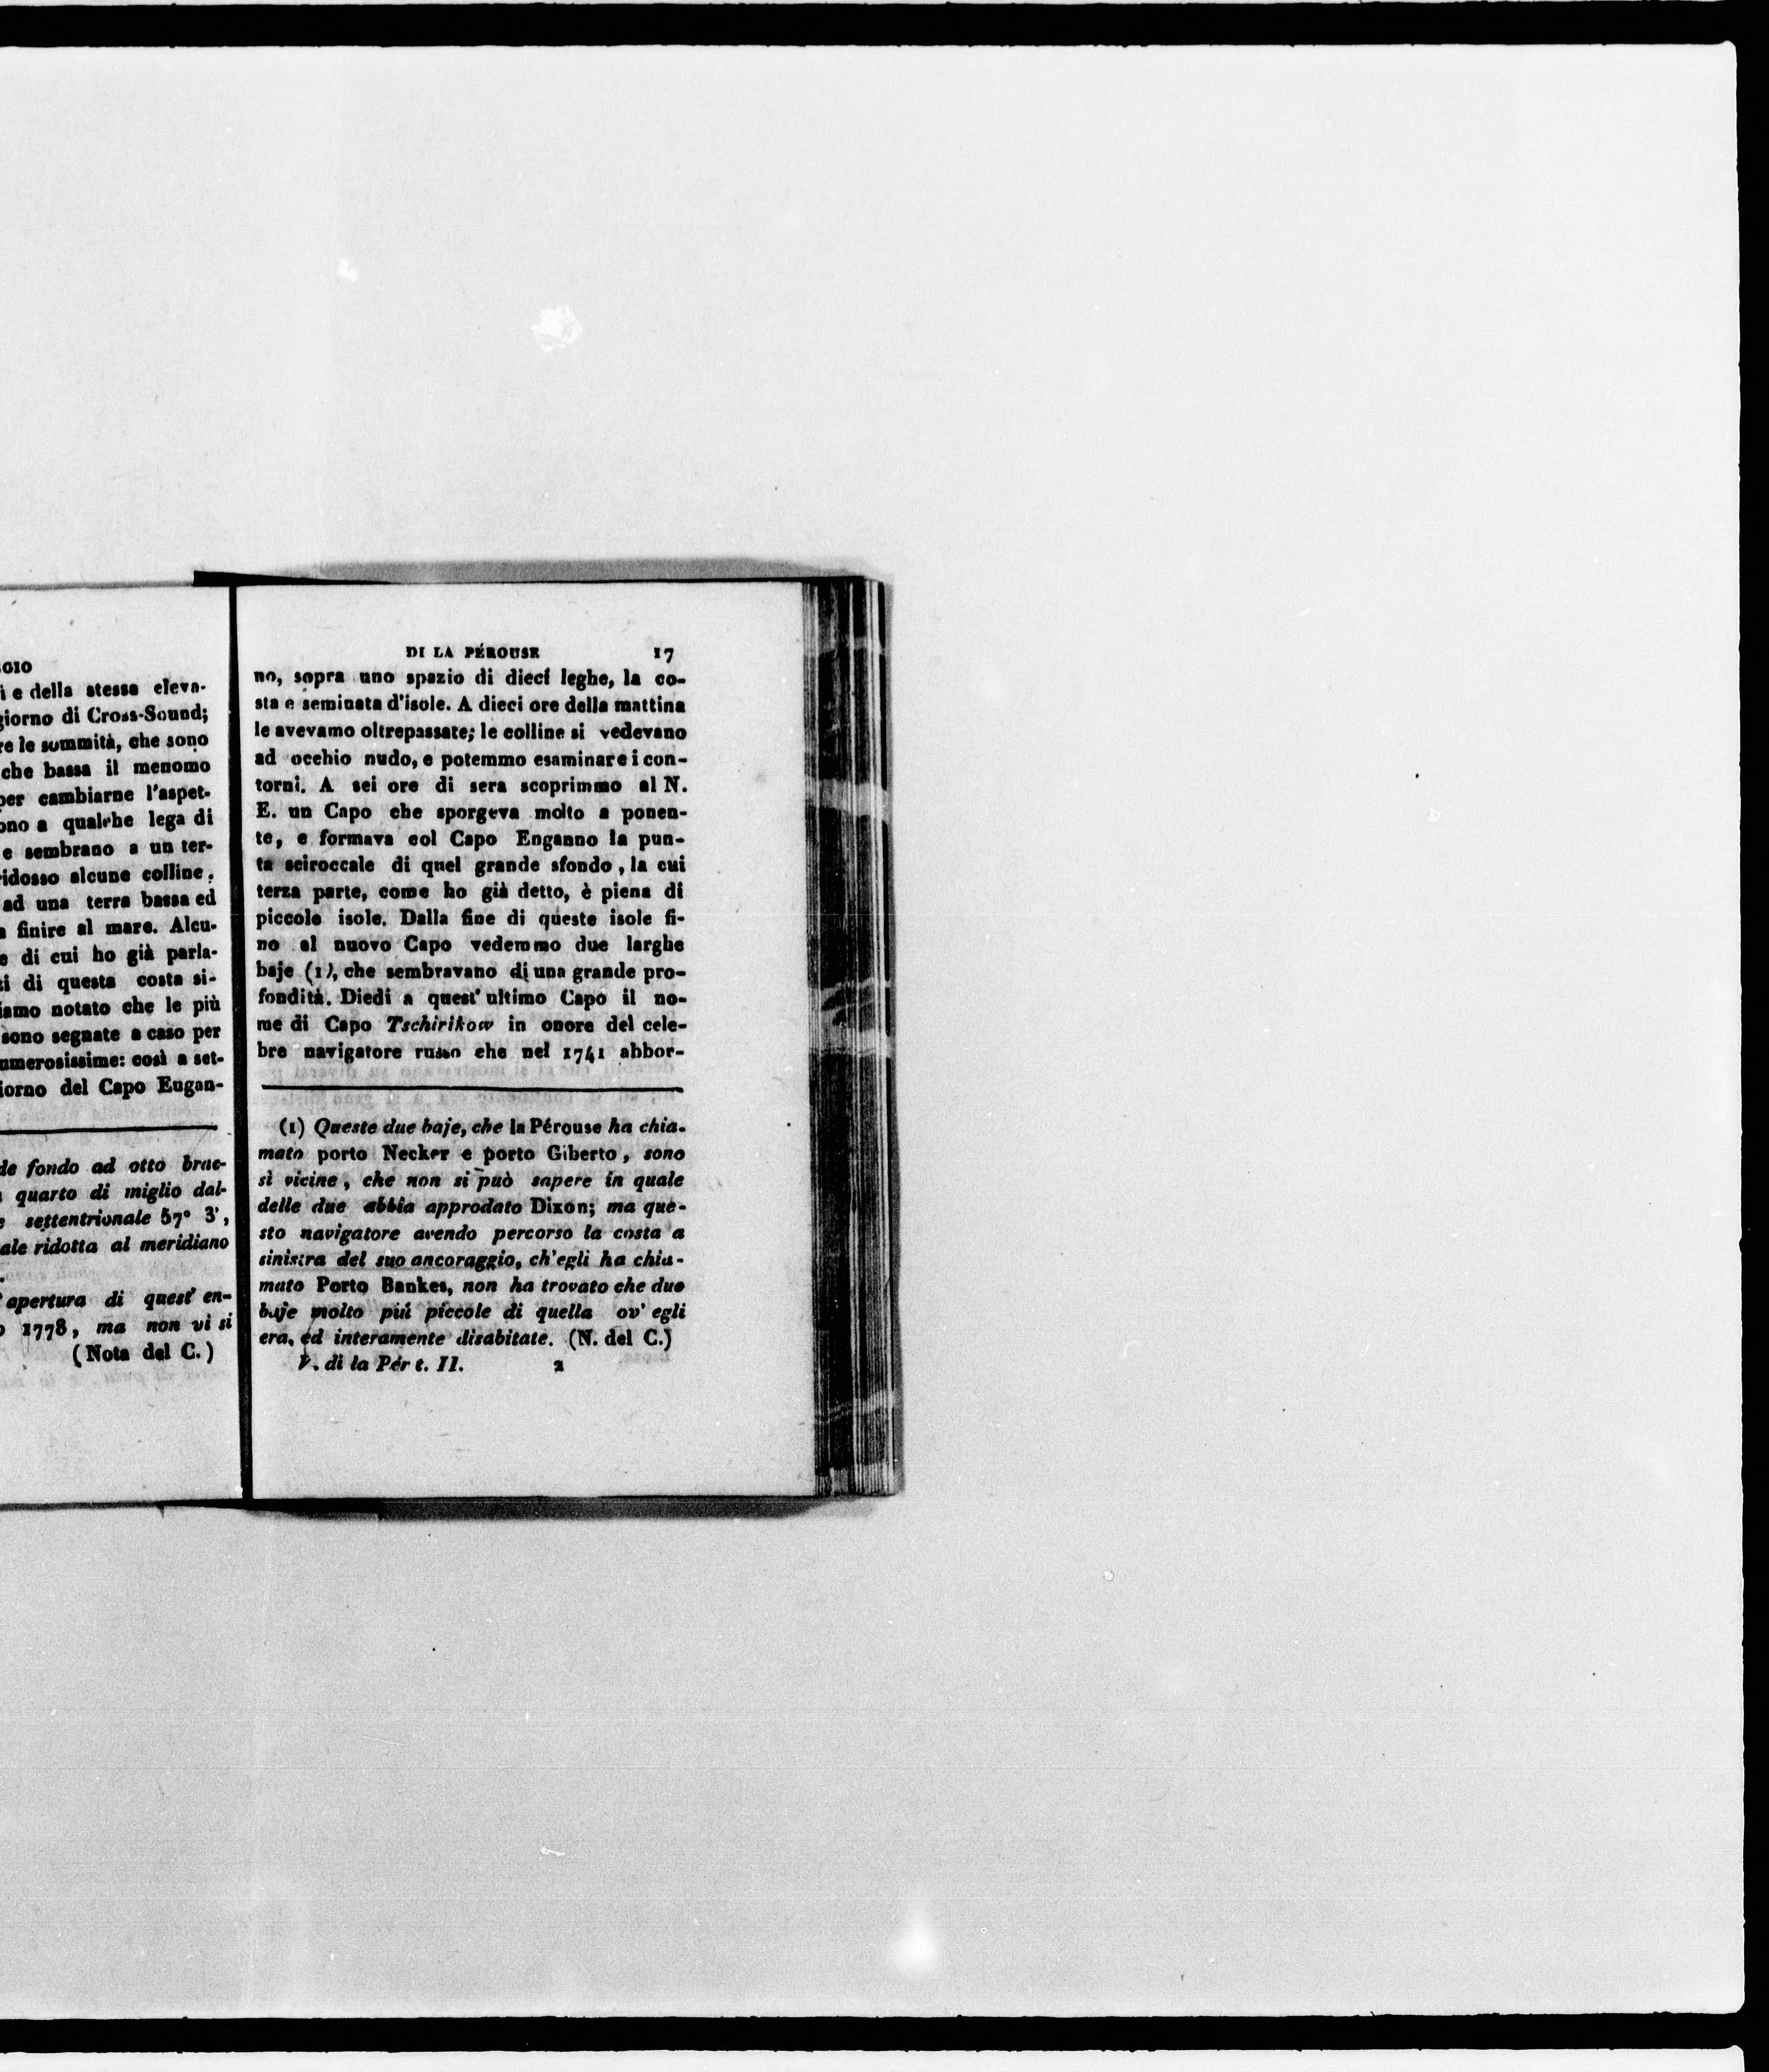 GIO
i e della stessa eleva-
giorno di Cross-Sound;
re le sommità, che sono
che bassa il menomo
per cambiarne l'aspet-
ono a qualche lega di
e sembrano a un ter-
idosso alcune colline.
ad una terra bassa ed
a finire al mare. Alcu-
e di cui ho già parla-
ti di questa costa si-
iamo notato che le più
sono segnate a caso per
umerosissime: così a set-
iorno del Capo Eugan-
de fondo ad otto brac-
quarto di miglio dal-
e settentrionale 57° 3',
ale ridotta al meridiano
apertura di quest' en-
o 1778, ma non vi si
(Nota del C.)
DI LA PÉROUSE 17
no, sopra uno spazio di dieci leghe, la co-
sta e seminata d'isole. A dieci ore della mattina
le avevamo oltrepassate; le colline si vedevano
ad occhio nudo, e potemmo esaminare i con-
torni. A sei ore di sera scoprimmo al N.
E. un Capo che sporgeva molto a ponen-
te, e formava col Capo Enganno la pun-
ta sciroccale di quel grande sfondo, la cui
terza parte, come ho già detto, è piena di
piccole isole. Dalla fine di queste isole fi-
no al nuovo Capo vedemmo due larghe
baje (1), che sembravano di una grande pro-
fondità. Diedi a quest' ultimo Capo il no-
me di Capo Tschirikow in onore del cele-
bre navigatore russo che nel 1741 abbor-
(1) Queste due baje, che la Pérouse ha chia-
mato porto Necker e porto Giberto, sono
sì vicine, che non si può sapere in quale
delle due abbia approdato Dixon; ma que-
sto navigatore avendo percorso la costa a
sinistra del suo ancoraggio, ch'egli ha chia-
mato Porto Bankes, non ha trovato che due
baje molto piú piccole di quella ov' egli
era, ed interamente disabitate. (N. del C.)
V. di la Pér t. II. 2